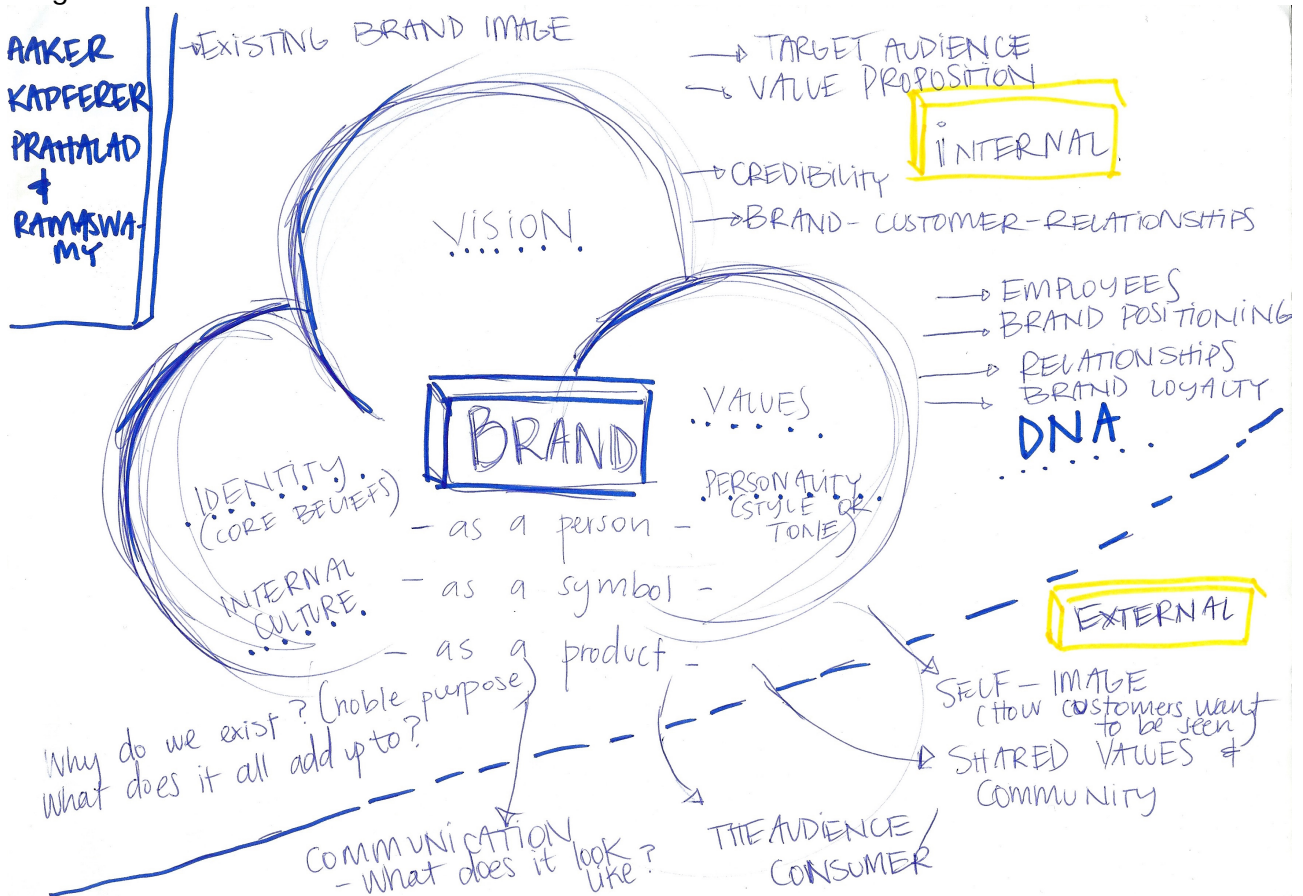 AAKER
KAPFERER
PRAHALAD
&
RAMASWA-
MY
EXISTING BRAND IMAGE
TARGET AUDIENCE
VALUE PROPOSITION
INTERNAL
CREDIBILITY
BRAND-CUSTOMER-RELATIONSHIPS
EMPLOYEES
BRAND POSITIONING
RELATIONSHIPS
BRAND LOYALTY
DNA
VISION
BRAND
VALUES
PERSONALITY
(STYLE OR
TONE)
IDENTITY
(CORE BELIEFS)
INTERNAL
CULTURE
- as a person -
- as a symbol -
- as a product -
Why do we exist? (noble purpose)
What does it all add up to?
EXTERNAL
SELF-IMAGE
(HOW customers want
to be seen)
SHARED VALUES &
COMMUNITY
COMMUNICATION
- What does it look
like?
THE AUDIENCE/
CONSUMER